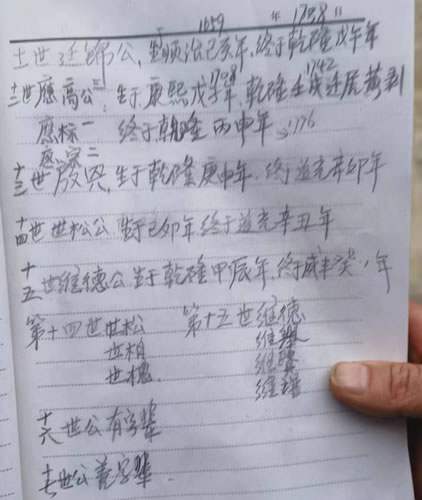 1659 年 1738 日
十一世廷錦公,生顺治己亥年,终于乾隆戊午年
1708 1742
十二世應高公三:生于康熙戊子年,乾隆壬戌迁居黄剥
應棕一 终于乾隆丙申年 1776
應宗二
十三世啟興,生于乾隆庚申年,终于道光辛卯年
十四世世松公,生于己卯年终于道光辛丑年
十五世维德公生于乾隆甲辰年,终咸丰癸丑年
第十四世世松 第十五世维德
世柏
世槐 维
维
十六世公有字輩
十七世公善字輩